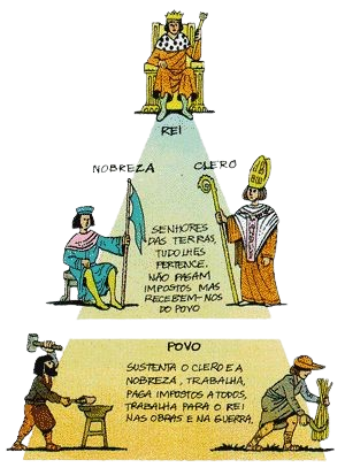 REI
NOBREZA
CLERO
SENHORES
DAS TERRAS,
TUDO LHES
PERTENCE.
NÃO PAGAM
IMPOSTOS MAS
RECEBEM-NOS
DO POVO
POVO
SUSTENTA O CLERO E A
NOBREZA, TRABALHA,
PAGA IMPOSTOS A TODOS,
TRABALHA PARA O REI
NAS OBRAS E NA GUERRA.